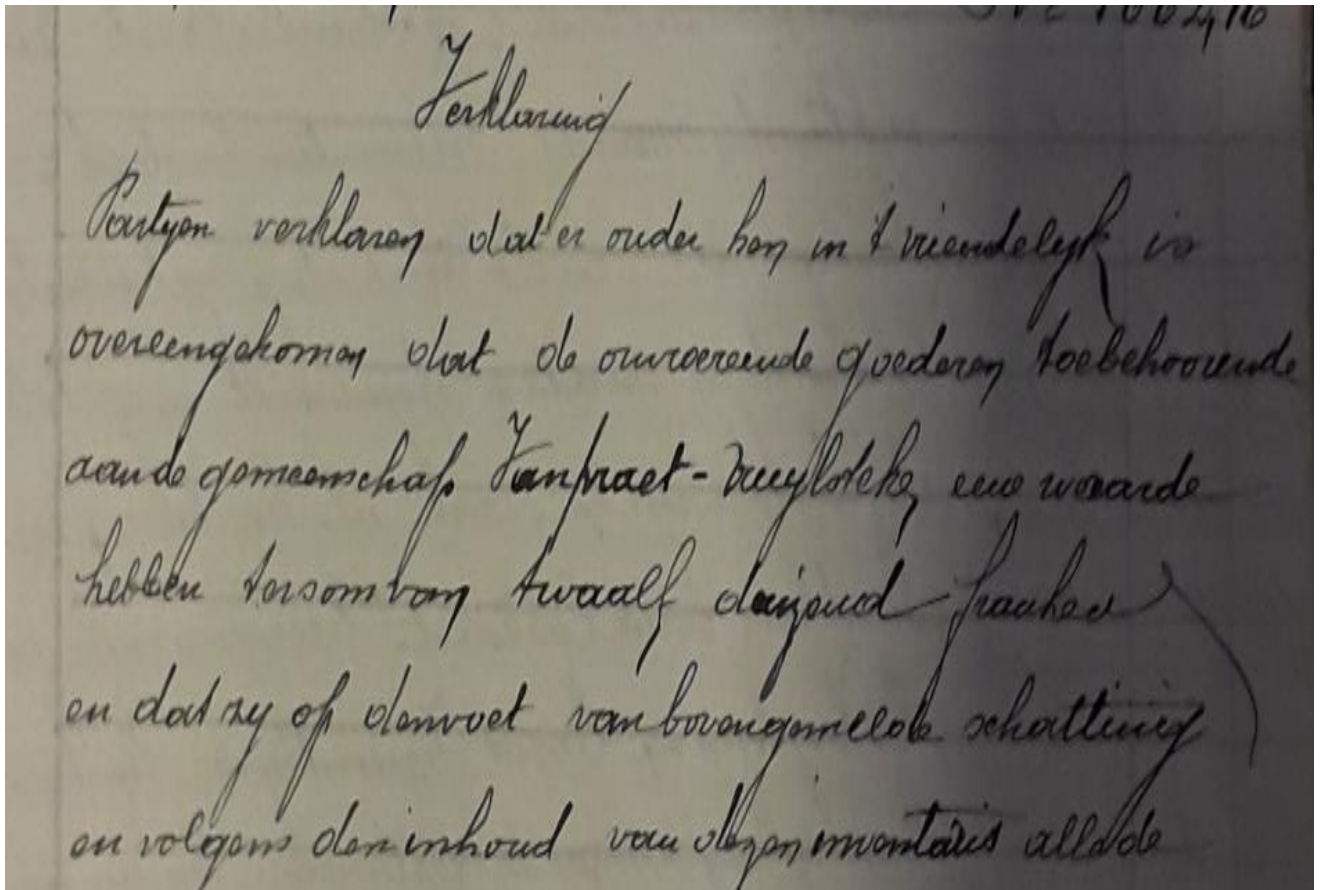 Verklaring
Partyen verklaren dat er onder hen in 't vriendelyk is
overeengekomen dat de onroerende goederen toebehoorende
aan de gemeenschap Vanpraet - Vuylsteke, eene waarde
hebben ter som van twaalf duizend franken
en dat zy op den voet van bovengemelde schatting
en volgens den inhoud van dezen inventaris all de